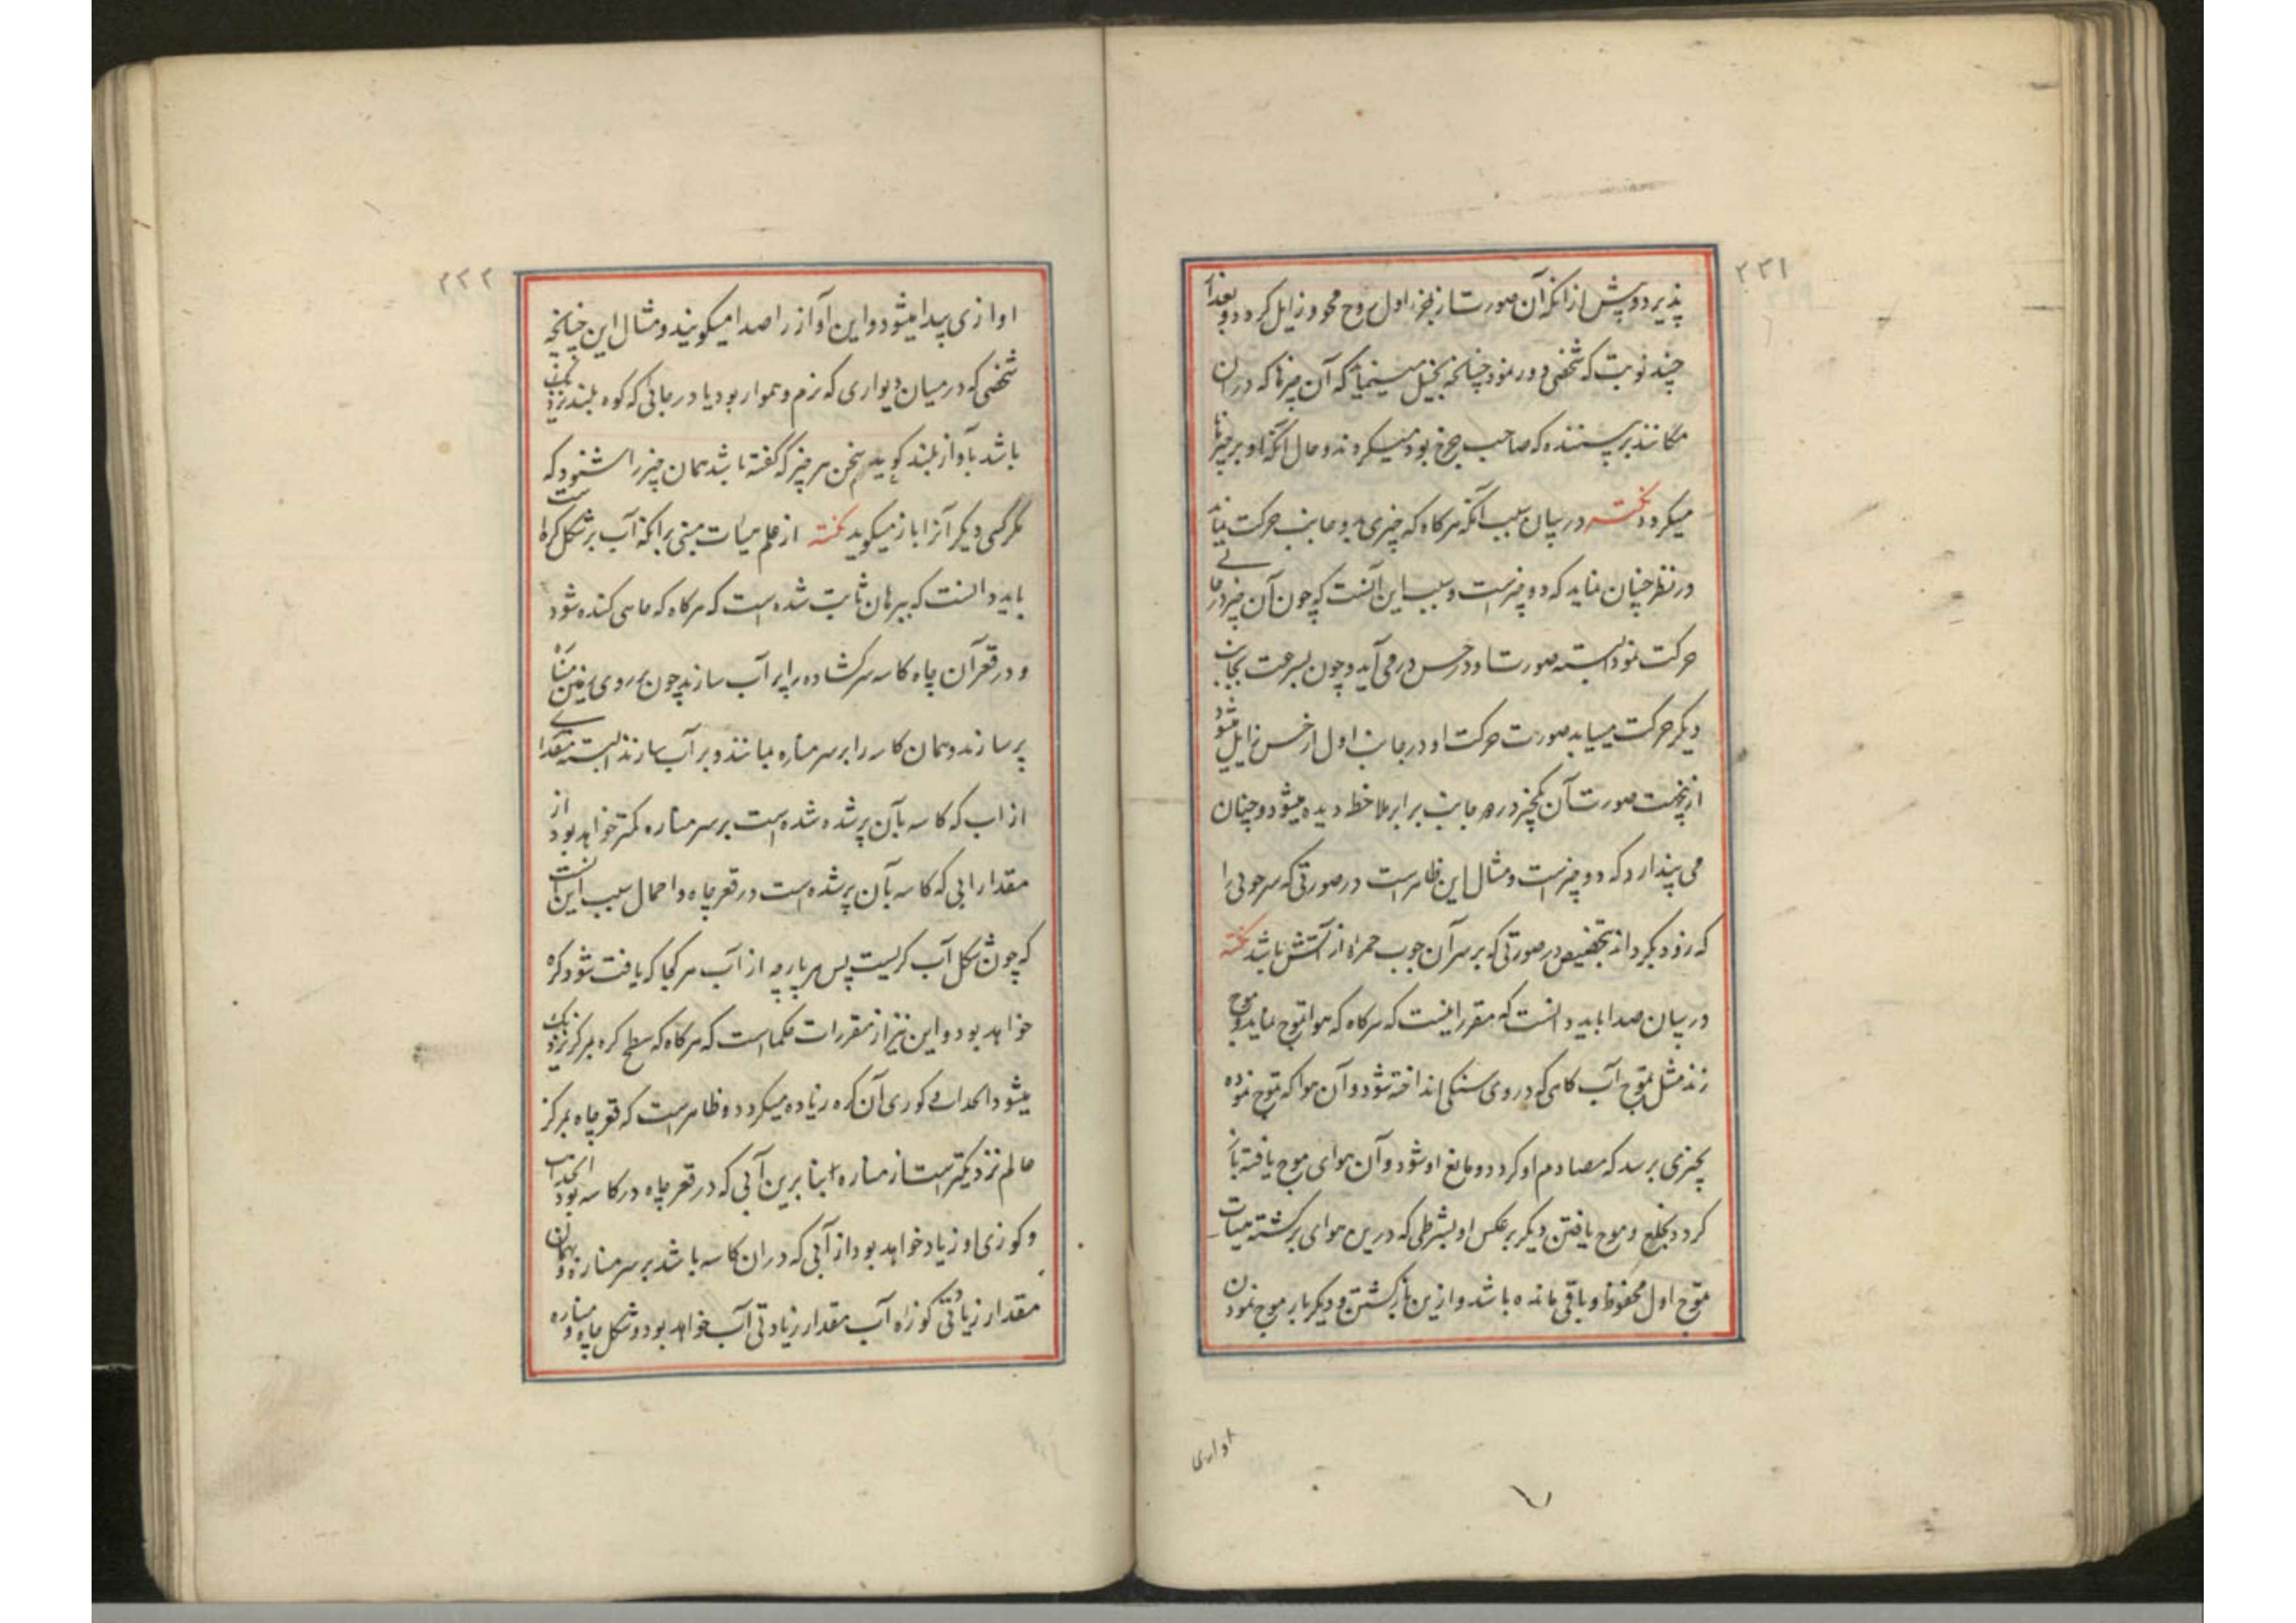 ۲۲۱
پذیرد و پیش از انکه آن صورت از اول روح محو و زایل کردد و بعد از
چند نوبت که شخصی دور نمود چنانچه تخیل مینماید که آن چیزها که در ان
مکانند بر پرسنده که صاحب چرخ بود میکردند و حال انکه او بر چیزها
میکردد نکته در بیان سبب آنکه هرکاه که چیزی بدو جانب حرکت نماید
در نظر چنان نماید که دو چیزست و سبب این آنست که چون آن چیز در جانبی
حرکت نمود البته صورت او در حس درمی آید و چون بسرعت بجانب
دیکر حرکت مینماید صورت حرکت او در جانب اول از حس زایل میشود
ازینجهت صورت آن یکچیز در هر جانب برابر ملاحظه دیده میشود و چنان
می پندارد که دو چیزست و مثال این ظاهرست در صورتی که سر چوبی را
که زود بکرداند بتخصیص در صورتی که بر سر آن چوب حمراه از آتش باشد نکته
در بیان صدا باید دانست که مقرر اینست که هرکاه که هوا تموج نماید و موج
زند مثل تموج آب کاهی که در وی سنکی انداخته شود و آن هوا که تموج نموده
بچیزی برسد که مصادم او کردد و مانع او شود و آن هوای موج یافته باز
کردد بخلع و موج یافتن دیکر بر عکس او بشرطی که درین هوای برکشته هیات
تموج اول محفوظ و باقی مانده باشد و ازین باز کشتن و دیکر بار موج نمودن
اوازی
۲۲۲
اوازی پیدا میشود و این آواز را صدا میکویند و مثال این چنانچه
شخصی که در میان دیواری که نرم و هموار بود یا در جائی که کوه بلند نزدیک
باشد بآواز بلند کوید سخن هر چیز که گفته باشد همان چیز را شنود که
مکر کسی دیکر آنرا باز میکوید نکته از علم هیات مبنی بر انکه آب بر شکل کره است
باید دانست که ببرهان ثابت شده است که هرکاه که چاهی کنده شود
و در قعر آن چاه کاسه سر کشاده را پر آب سازند چون بر روی زمین مناره
پر سازند و همان کاسه را بر سر مناره نمایند و پر آب سازند البته مقداری
از اب که کاسه بآن پر شده شده است بر سر مناره کمتر خواهد بود از
مقدار ابی که کاسه بآن پر شده است در قعر چاه و احمال سبب این آنست
که چون شکل آب کریست پس هر پارچه از آب هر کجا که یافت شود کره
خواهد بود و این نیز از مقررات حکما است که هرکاه که سطح کره بمرکز نزدیک
میشود انحداب و کوری آن کره زیاده میکردد و ظاهرست که قعر چاه بمرکز
عالم نزدیکترست از مناره بنا برین آبی که در قعر چاه در کاسه بود انحداب
و کوزی او زیاد خواهد بود از آبی که در ان کاسه باشد بر سر مناره و بهمان
مقدار زیادتی کوزاه آب مقدار زیادتی آب خواهد بود و شکل چاه و مناره